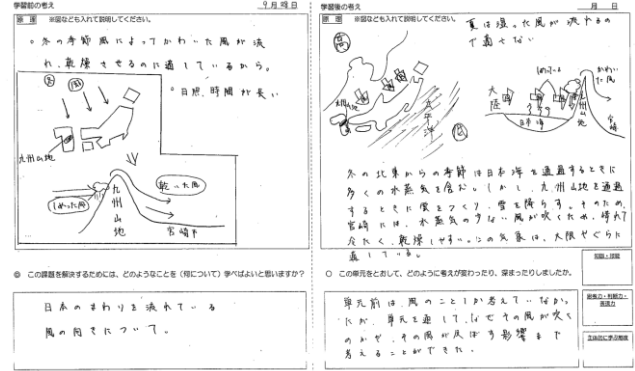 学習前の考え
9月28日
原理 ※図なども入れて説明してください。
。冬の季節風によってかわいた風が流
れ、乾燥させるのに適しているから。
。日照時間が長い
冬
風
九州山地
しめった風
九州山地
乾いた風
宮崎平
◎ この課題を解決するためには、どのようなこと(何について)学べばよいと思いますか?
日本のまわりを流れている
風の向きについて。
学習後の考え
月 日
原理 ※図なども入れて説明してください。
夏は湿った風が流れるの
で適さない
九州山地
太平洋
大陸
日本海
しめった
かわいた風
九州山地
宮崎
冬の北東からの季節は日本海を通過するときに
多くの水蒸気を含む。しかし、九州山地を通過
するときに雲をつくり、雪を降らす。そのため、
宮崎には、水蒸気の少ない風が吹くため、晴れて
冷たく、乾燥しやすい。この気象は、大根やぐらに
適している。
○ この単元をとおして、どのように考えが変わったり、深まったりしましたか。
単元前は、風のことしか考えていなかっ
たが、単元を通して、なぜその風が吹く
のかや、その風が及ぼす影響まで
考えることができた。
知識・技能
思考力・判断力・表現力
主体的に学ぶ態度